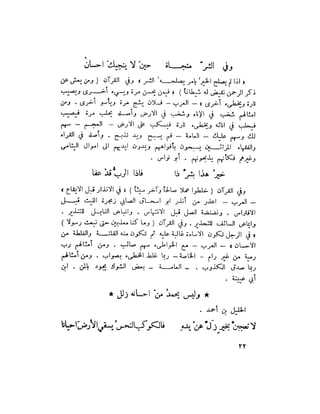 وفي الشر منجاة حين لا ينجيك احسان
« اذا لم يصلح الخير بامر يصلحه الشر » وفي القرآن ( ومن يعش عن
ذكر الرحمن نقيض له شيطانا ) « فيمن يحسن مرة ويسيء أخرى ويصيب
تارة ويخطىء أخرى » – العرب – فلان يشج مرة ويأسو أخرى . ومن
امثالهم شخب في الإناء وشخب في الارض وأصله يحلب مرة فيصيب
فيحلب في انائه ويخطىء تارة فيسكب على الارض – العجم – سهم
لك وسهم عليك – العامة – فم يسبح ويد تذبح . وأصله في القراء
والفقهاء المرائين يسبحون بأفواههم ويمدون ايديهم الى اموال اليتامى
وغيرهم فكأنهم يذبحونهم . أبو نواس .
خير هذا بشر ذا فاذا الرب قد عفا
وفي القرآن ( خلطوا عملا صالحا وآخر سيئا ) « في الانذار قبل الايقاع »
– العرب – اعذر من أنذر ابو اسحاق الصابي زمجرة الليث قبل
الافتراس . ونضنضة الصل قبل الانتهاس . وانباض النابل للتنذير .
وايماض السائف للتحذير . وفي القرآن ( وما كنا معذبين حتى نبعث رسولا )
« في الرجل تكون الاساءة غالبة عليه ثم تكون منه الفلتة والغلطة من
الاحسان » – العرب – مع الخواطىء سهم صائب . ومن أمثالهم رب
رمية من غير رام – الخاصة – ربما غلط المخطىء بصواب . ومن أمثالهم
ربما صدق الكذوب . – العامة – بعض الشوك يجود بالمن . ابن
أبي عيينة .
★ وليس يحمد من احسانه زلل ★
الخليل بن أحمد .
لا تعجبن بخير زل عن يده فالكوكب النحس يسقي الأرض احيانا
٢٢